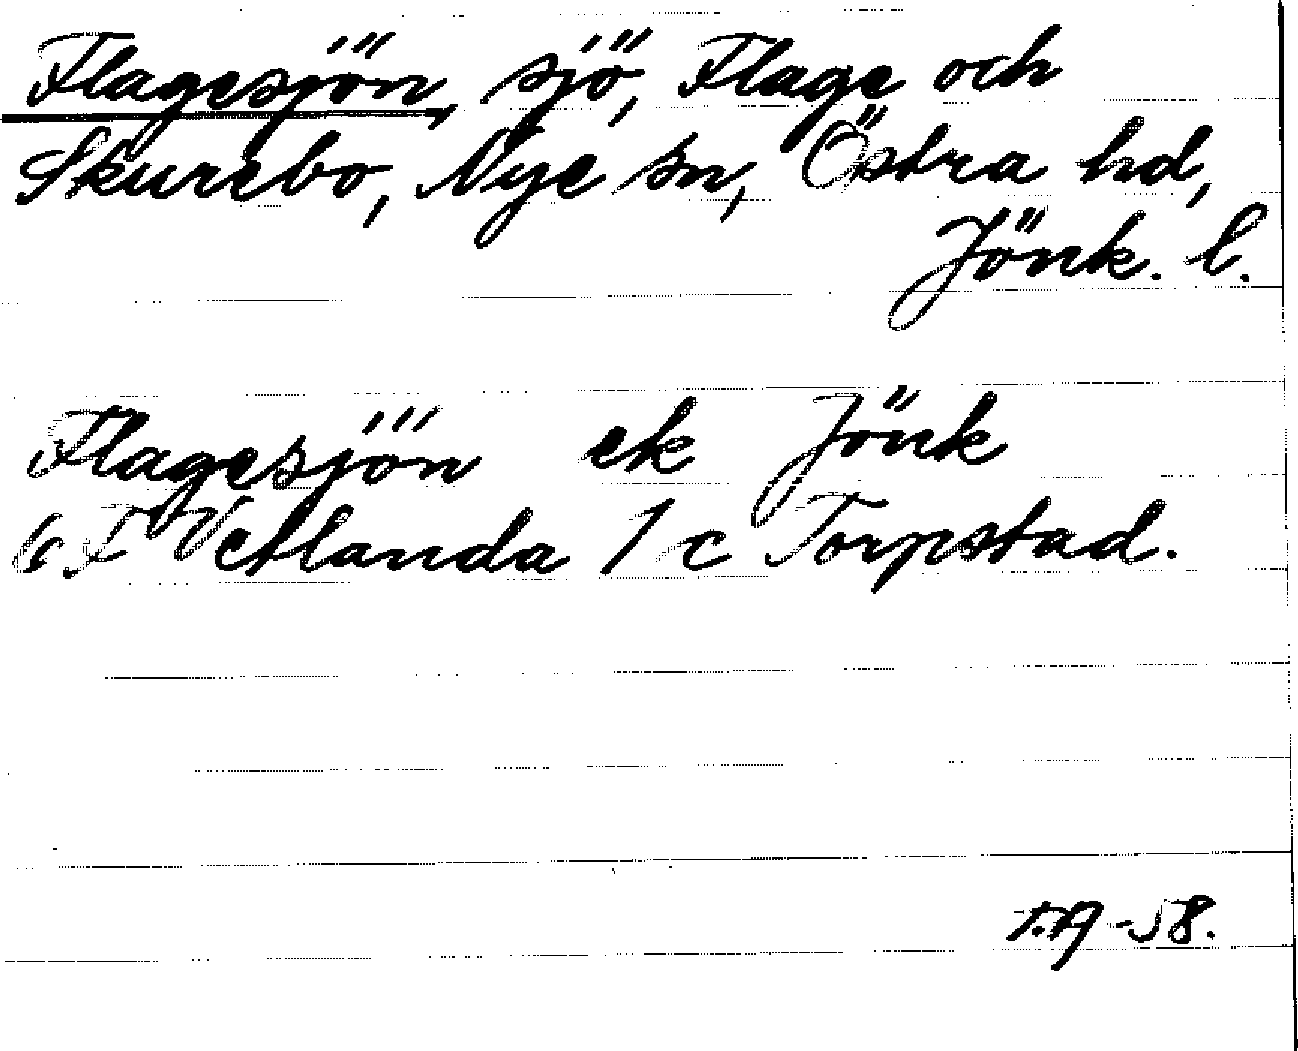 Flagesjön, sjö, Flage och
Skurebo, Nye sn, Östra hd,
Jönk. l.
Flagesjön ek Jönk
6 F Vetlanda 1 c Torpstad.
-58.